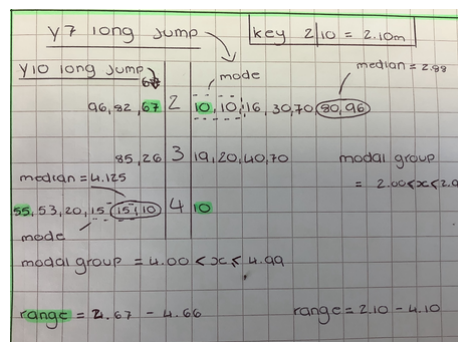 Y7 long jump
key 2|10 = 2.10m
Y10 long jump
mode
median = 2.88
96, 82, 67 2 10, 10, 16, 30, 70, 80, 96
85, 26 3 19, 20, 40, 70
median = 4.125
modal group
= 2.00<x≤2.9
55, 53, 20, 15, 15, 10 4 10
mode
modal group = 4.00 < x ≤ 4.99
range = 2.67 - 4.66
range = 2.10 - 4.10